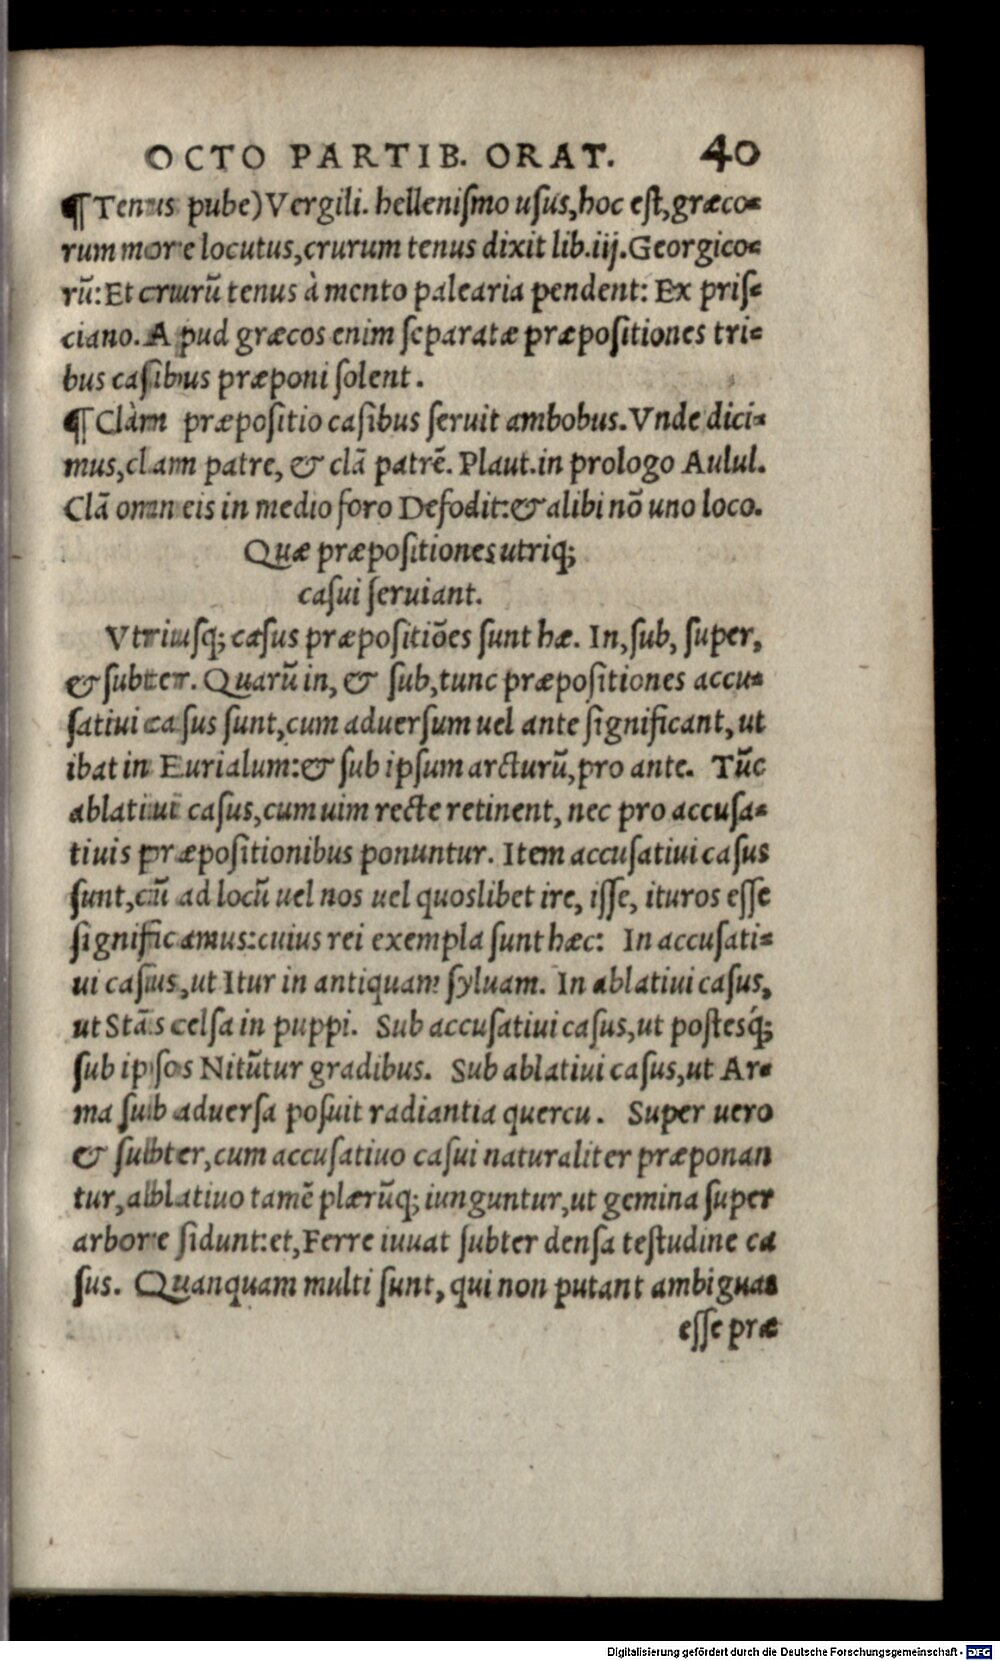 OCTO PARTIB. ORAT. 40
¶Tenus pube) Vergili. helleniſmo uſus, hoc eſt, græco-
rum more locutus, crurum tenus dixit lib.iij. Georgico-
rū: Et crurū tenus à mento palearia pendent: Ex priſ-
ciano. Apud græcos enim ſeparatæ præpoſitiones tri-
bus caſibus præponi ſolent.
¶Clàm præpoſitio caſibus ſeruit ambobus. Vnde dici-
mus, clam patre, & clā patrē. Plaut. in prologo Aulul.
Clā omneis in medio foro Defodit: & alibi nō uno loco.
Quæ præpoſitiones utriq;
caſui ſeruiant.
Vtriuſq; caſus præpoſitiōes ſunt hæ. In, ſub, ſuper,
& ſubter. Quarū in, & ſub, tunc præpoſitiones accu-
ſatiui caſus ſunt, cum aduerſum uel ante ſignificant, ut
ibat in Eurialum: & ſub ipſum arcturū, pro ante. Tūc
ablatiui caſus, cum uim recte retinent, nec pro accuſa-
tiuis præpoſitionibus ponuntur. Item accuſatiui caſus
ſunt, cū ad locū uel nos uel quoslibet ire, iſſe, ituros eſſe
ſignificamus: cuius rei exempla ſunt hæc: In accuſati-
ui caſus, ut Itur in antiquam ſyluam. In ablatiui caſus,
ut Stās celſa in puppi. Sub accuſatiui caſus, ut poſtesq́;
ſub ipſos Nitūtur gradibus. Sub ablatiui caſus, ut Ar-
ma ſub aduerſa poſuit radiantia quercu. Super uero
& ſubter, cum accuſatiuo caſui naturaliter præponan
tur, ablatiuo tamē plærūq; iunguntur, ut gemina ſuper
arbore ſidunt: et, Ferre iuuat ſubter denſa teſtudine ca
ſus. Quanquam multi ſunt, qui non putant ambiguas
eſſe præ
Digitalisierung gefördert durch die Deutsche Forschungsgemeinschaft - DFG